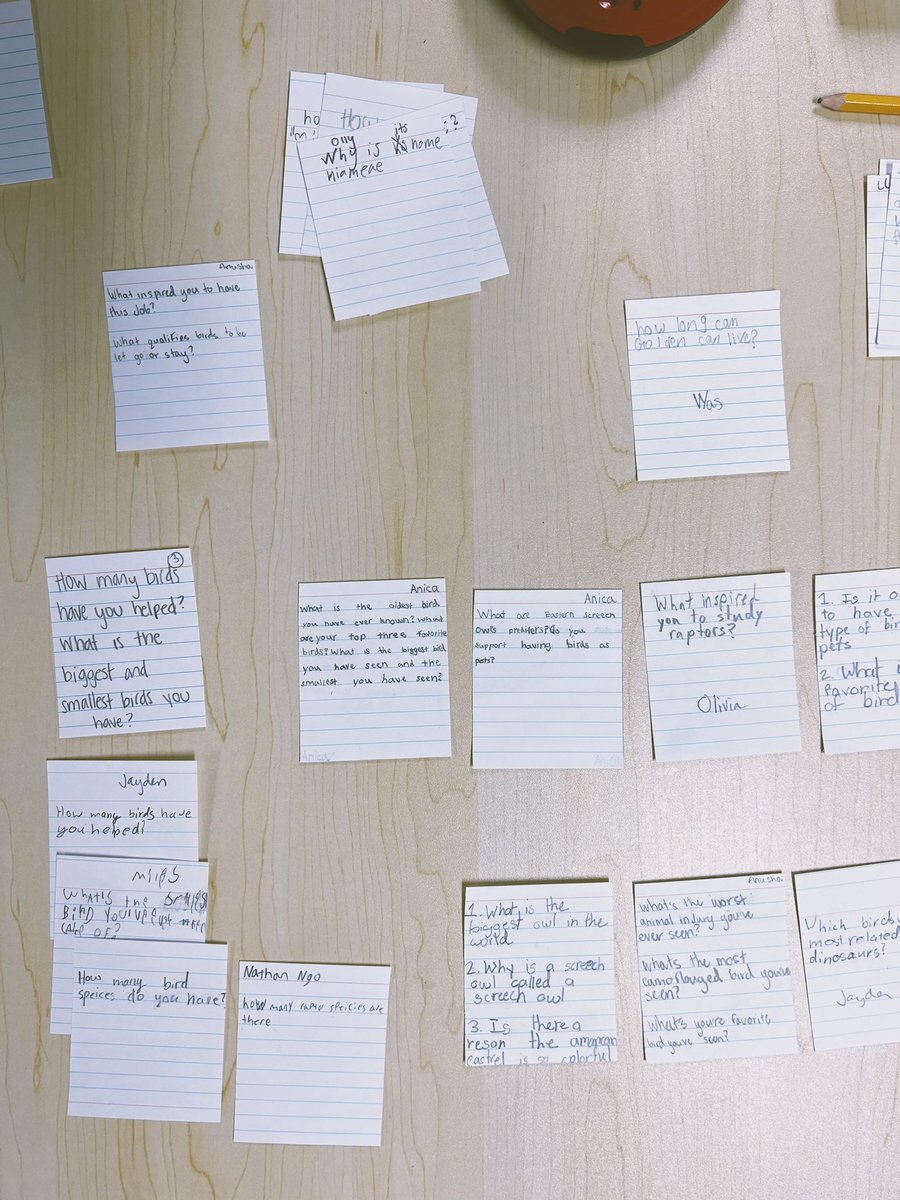 ho
How
Olly
its
Why is home ;?
niameae
Anusha
What inspired you to have
this Job?
What qualifies birds to be
let go or stay?
how long can
Golden can live?
Was
3
How many birds
have you helped?
What is the
biggest and
smallest birds you
have?
Anica
What is the oldest bird
you have ever known? What
are your top three favorite
birds? What is the biggest bird
you have seen and the
smallest you have seen?
Anica
Anica
What are Eastern screech
owls do you
support having birds as
pets?
What inspired
you to study
raptors?
Olivia
1. Is it o
to have
type of bir
pets
2. What i
favorite
of bird
Jayden
How many birds have
you helped?
What is the
Bird you've
care of?
How many bird
speices do you have?
Nathan Ngo
how many speicies are
there
1. What is the
biggest owl in the
world
2. Why is a screech
owl called a
screech owl
3. Is there a
reson the
castrel is so colorful
Anusha
what's the worst
animal injury you've
ever seen?
Whats the most
camoflauged bird you've
seen?
What's youre favorite
bird you've seen?
Which birds
most related
dinosaurs?
Jayden